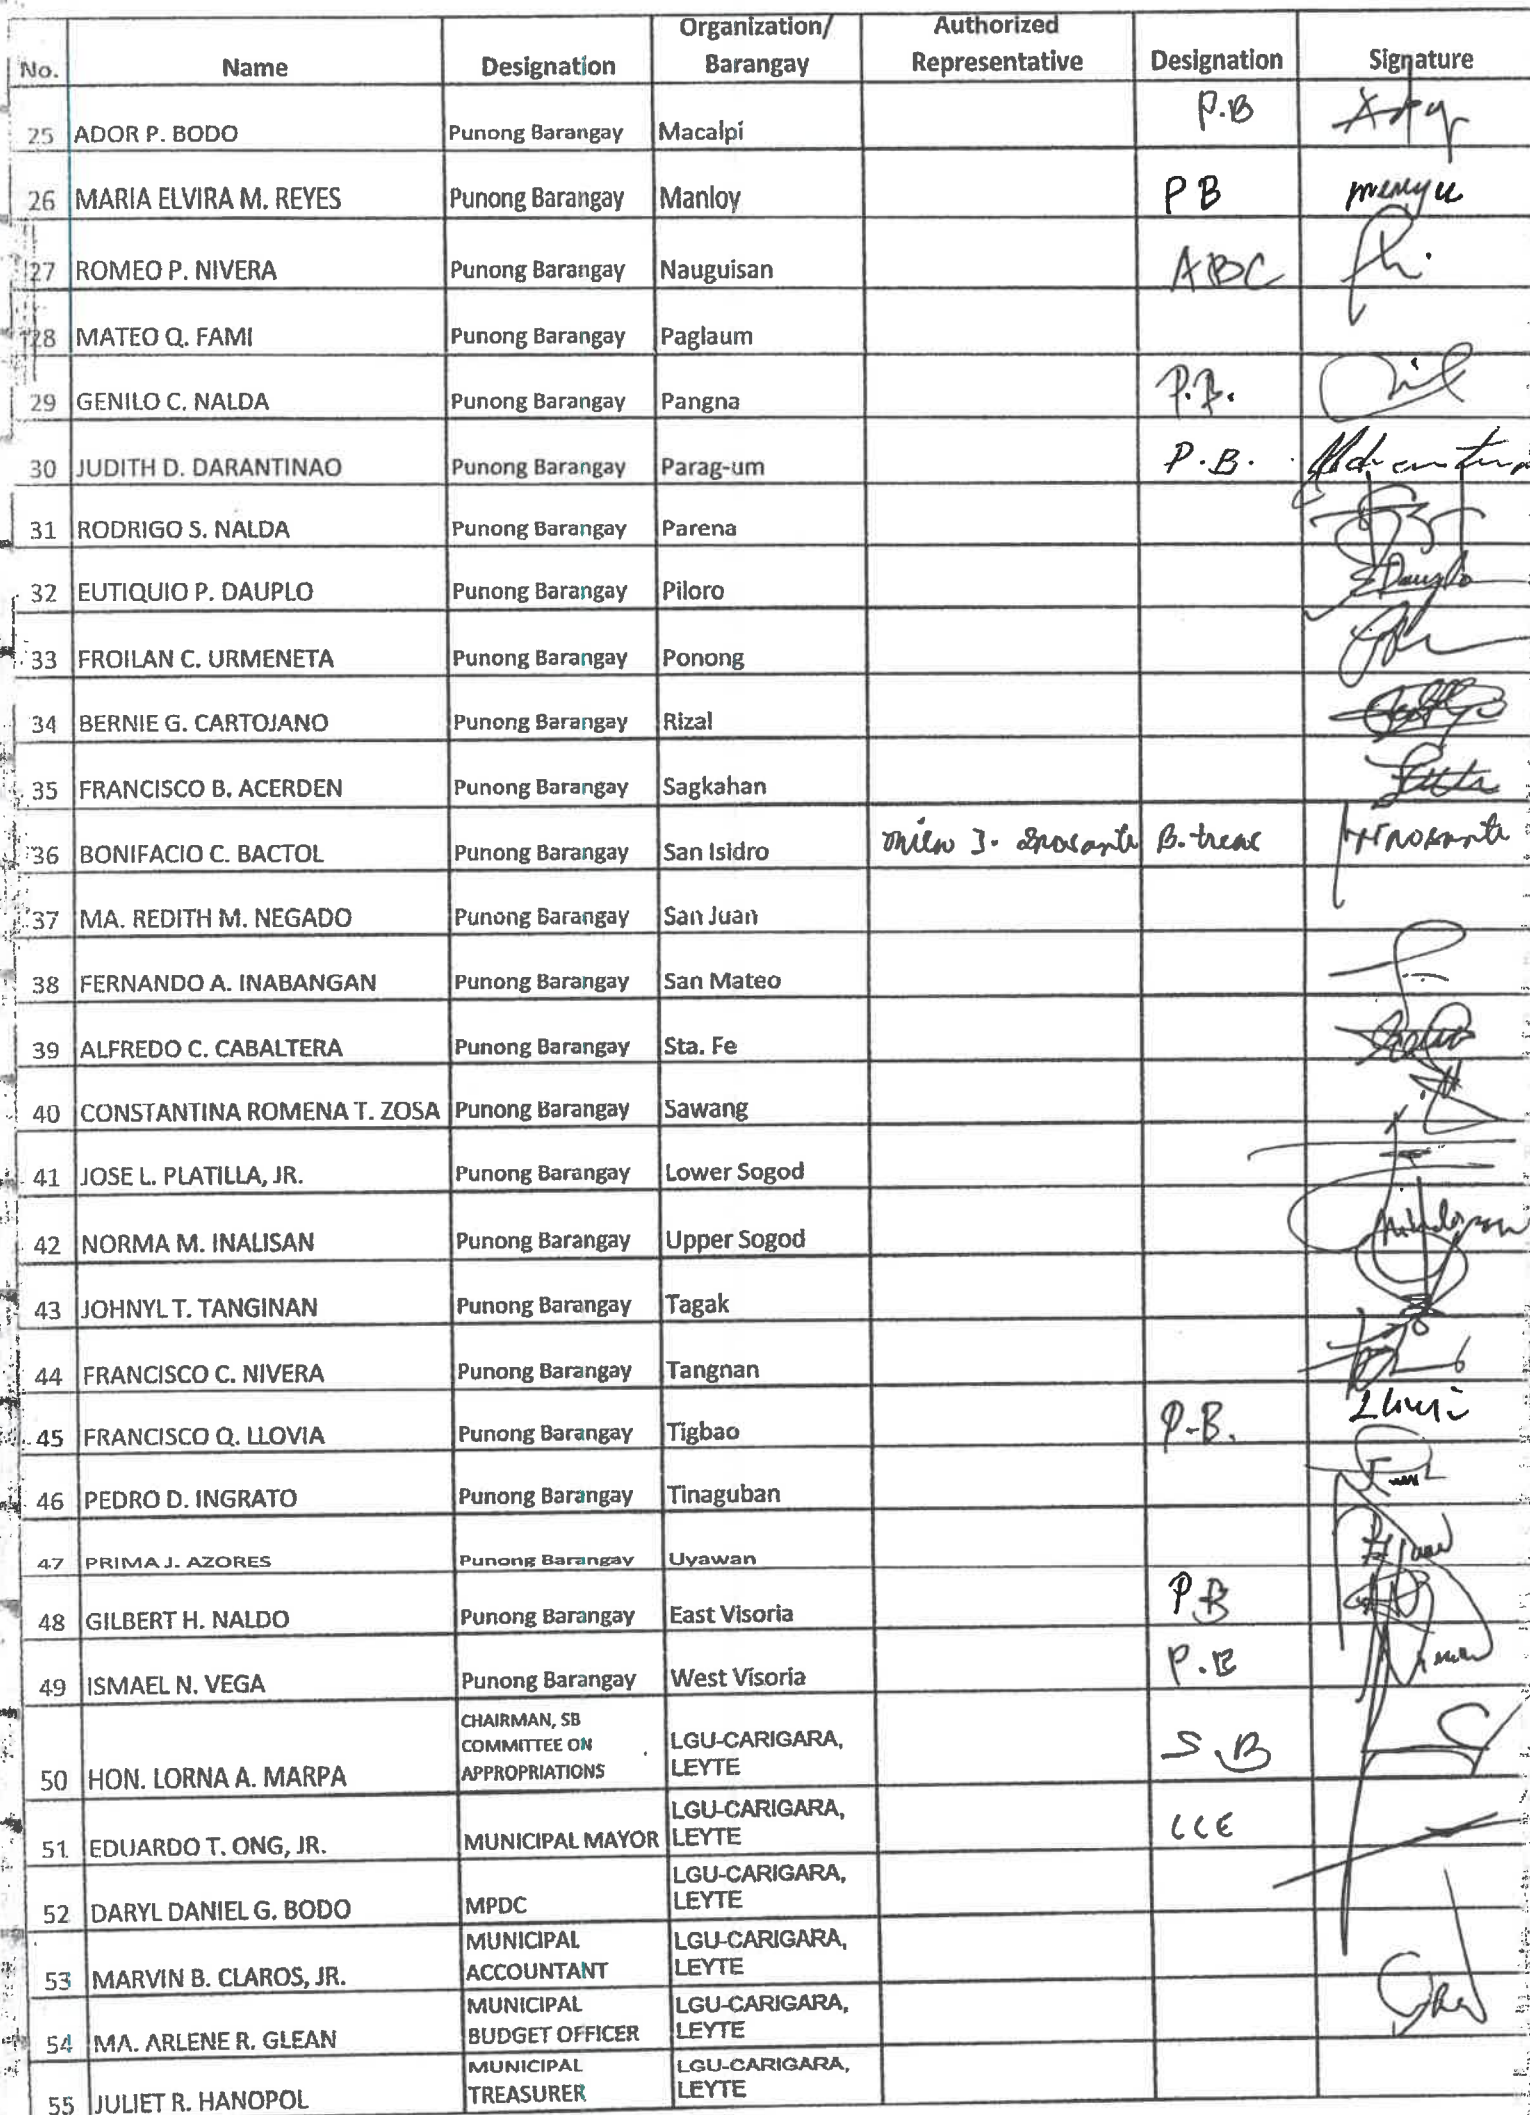 No. Name Designation Organization/ Barangay Authorized Representative Designation Signature
25 ADOR P. BODO Punong Barangay Macalpi P.B
26 MARIA ELVIRA M. REYES Punong Barangay Manloy PB
27 ROMEO P. NIVERA Punong Barangay Nauguisan ABC
28 MATEO Q. FAMI Punong Barangay Paglaum
29 GENILO C. NALDA Punong Barangay Pangna P.B.
30 JUDITH D. DARANTINAO Punong Barangay Parag-um P.B.
31 RODRIGO S. NALDA Punong Barangay Parena
32 EUTIQUIO P. DAUPLO Punong Barangay Piloro EDauplo
33 FROILAN C. URMENETA Punong Barangay Ponong
34 BERNIE G. CARTOJANO Punong Barangay Rizal
35 FRANCISCO B. ACERDEN Punong Barangay Sagkahan
36 BONIFACIO C. BACTOL Punong Barangay San Isidro J. B. treas
37 MA. REDITH M. NEGADO Punong Barangay San Juan
38 FERNANDO A. INABANGAN Punong Barangay San Mateo
39 ALFREDO C. CABALTERA Punong Barangay Sta. Fe
40 CONSTANTINA ROMENA T. ZOSA Punong Barangay Sawang
41 JOSE L. PLATILLA, JR. Punong Barangay Lower Sogod
42 NORMA M. INALISAN Punong Barangay Upper Sogod
43 JOHNYL T. TANGINAN Punong Barangay Tagak
44 FRANCISCO C. NIVERA Punong Barangay Tangnan
45 FRANCISCO Q. LLOVIA Punong Barangay Tigbao P.B.
46 PEDRO D. INGRATO Punong Barangay Tinaguban
47 PRIMA J. AZORES Punong Barangay Uyawan
48 GILBERT H. NALDO Punong Barangay East Visoria P.B
49 ISMAEL N. VEGA Punong Barangay West Visoria P.B
50 HON. LORNA A. MARPA CHAIRMAN, SB COMMITTEE ON APPROPRIATIONS LGU-CARIGARA, LEYTE S.B
51 EDUARDO T. ONG, JR. MUNICIPAL MAYOR LGU-CARIGARA, LEYTE LCE
52 DARYL DANIEL G. BODO MPDC LGU-CARIGARA, LEYTE
53 MARVIN B. CLAROS, JR. MUNICIPAL ACCOUNTANT LGU-CARIGARA, LEYTE
54 MA. ARLENE R. GLEAN MUNICIPAL BUDGET OFFICER LGU-CARIGARA, LEYTE
55 JULIET R. HANOPOL MUNICIPAL TREASURER LGU-CARIGARA, LEYTE